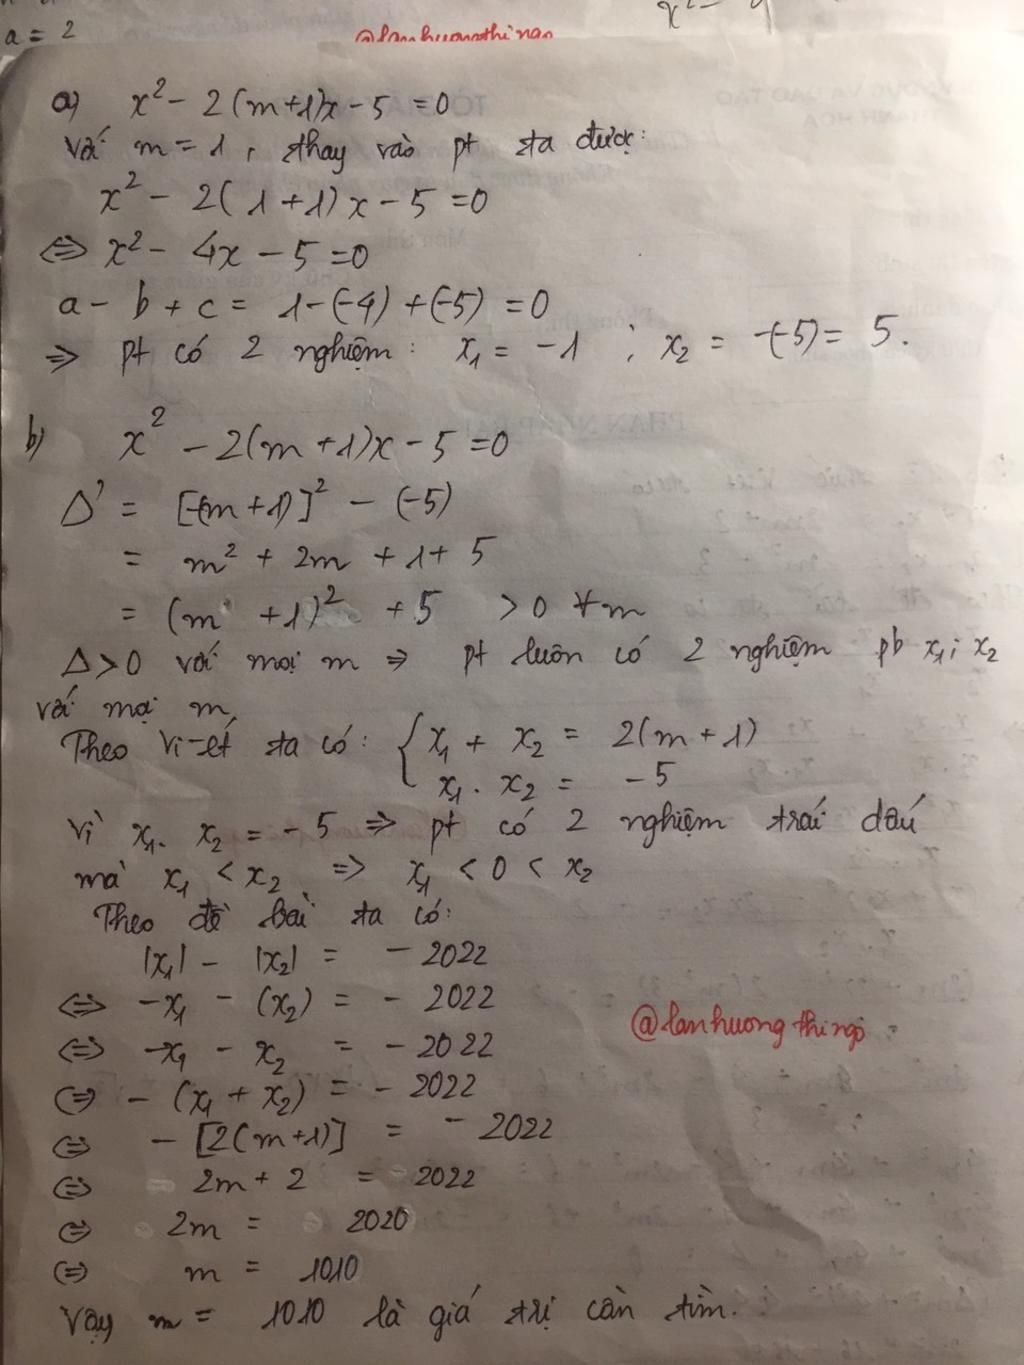 a = 2
@lanhuongthingo
a) x² - 2(m+1)x - 5 = 0
Với m = 1, thay vào pt ta được:
x² - 2(1+1)x - 5 = 0
⇔ x² - 4x - 5 = 0
a - b + c = 1 - (-4) + (-5) = 0
⇒ pt có 2 nghiệm: x₁ = -1 ; x₂ = -(-5) = 5.
b) x² - 2(m+1)x - 5 = 0
Δ' = [-(m+1)]² - (-5)
= m² + 2m + 1 + 5
= (m + 1)² + 5 > 0 ∀m
Δ > 0 với mọi m ⇒ pt luôn có 2 nghiệm pb x₁; x₂
với mọi m
Theo Vi-ét ta có: { x₁ + x₂ = 2(m+1)
x₁ . x₂ = -5
Vì x₁. x₂ = -5 ⇒ pt có 2 nghiệm trái dấu
mà x₁ < x₂ ⇒ x₁ < 0 < x₂
Theo đề bài ta có:
|x₁| - |x₂| = - 2022
⇔ -x₁ - (x₂) = - 2022
⇔ -x₁ - x₂ = - 2022
@lanhuongthingo
⇔ - (x₁ + x₂) = - 2022
⇔ - [2(m+1)] = - 2022
⇔ 2m + 2 = 2022
⇔ 2m = 2020
⇔ m = 1010
Vậy m = 1010 là giá trị cần tìm.